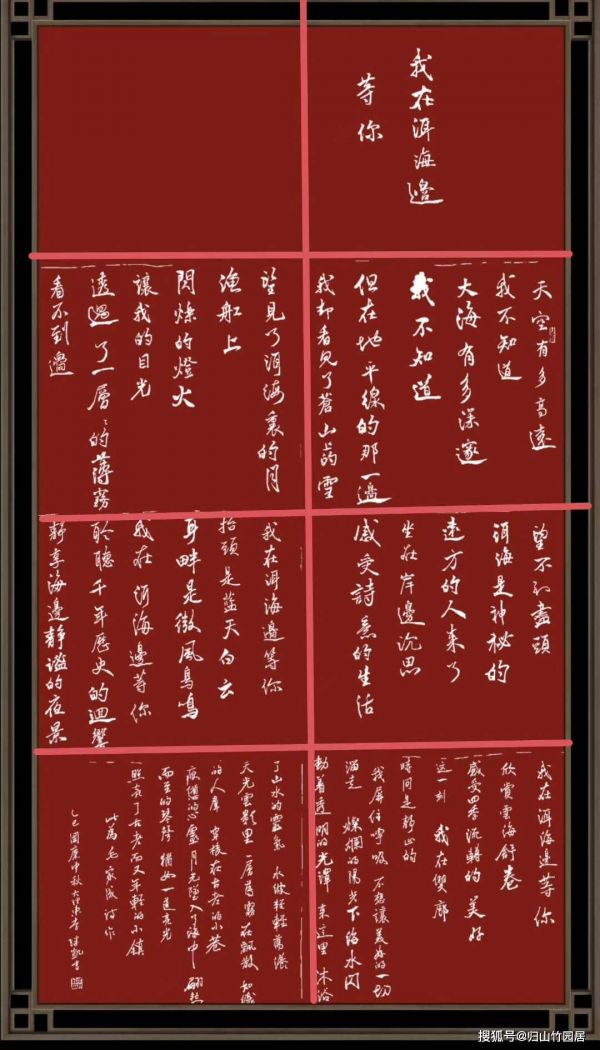 我在洱海邊
等你
天空有多高遠
我不知道
大海有多深邃
我不知道
但在地平線的那一邊
我却看見了蒼山的雪
望見了洱海裏的月
漁船上
閃爍的燈火
讓我的目光
透過了一層〻的薄霧
看不到邊
望不到盡頭
洱海是神秘的
遠方的人來了
坐在岸邊沉思
感受詩意的生活
我在洱海邊等你
抬頭是藍天白云
身畔是微風鳥鳴
我在洱海邊等你
聆聽千年歷史的迴響
靜享海邊靜謐的夜景
我在洱海邊等你
欣賞雲海舒卷
感受四季流轉的美好
這一刻 我在雙廊
時間是靜止的
我屏住呼吸 不想讓美好的一切
溜走 燦爛的陽光下海水閃
動着透明的光澤 來這里 沐浴
了山水的靈氣 水做輕輕蕩漾
天光雲影里 一層薄霧在飄散 如織
的人群 穿梭在古老的小巷
疲憊的心靈 月光墜入了海中 翩然
而至的琴聲 猶如一道亮光
照亮了古老而又年輕的小鎮
此爲毛家 詩作
乙巳國慶中秋大理 書
搜狐号@归山竹园居